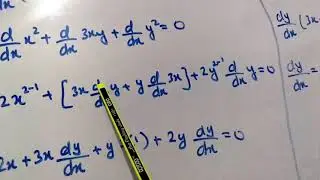 d/dx x² + d/dx 3xy + d/dx y² = 0
2x²⁻¹ + [3x d/dx y + y d/dx 3x] + 2y²⁻¹ d/dx y = 0
2x + 3x dy/dx + y 1) + 2y dy/dx = 0
dy/dx (3x
dy/dx =